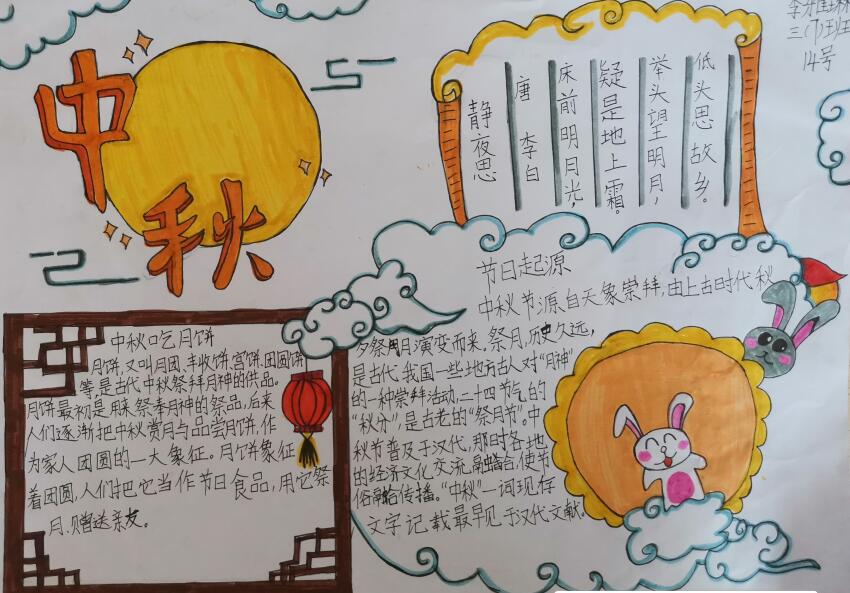 中秋
三(7)班
14号
静夜思
唐 李白
床前明月光,
疑是地上霜。
举头望明月,
低头思故乡。
节日起源
中秋节源自天象崇拜,由上古时代秋
夕祭月演变而来.祭月,历史久远,
是古代我国一些地方古人对“月神”
的一种崇拜活动,二十四节气的
“秋分”,是古老的“祭月节”.中
秋节普及于汉代,那时各地
的经济文化交流融合,使节
俗融合传播。“中秋”一词现存
文字记载最早见于汉代文献。
中秋吃月饼
月饼,又叫月团、丰收饼,宫饼,团圆饼
等,是古代中秋祭拜月神的供品。
月饼最初是用来祭奉月神的祭品,后来
人们逐渐把中秋赏月与品尝月饼,作
为家人团圆的一大象征。月饼象征
着团圆,人们把它当作节日食品,用它祭
月.赠送亲友。